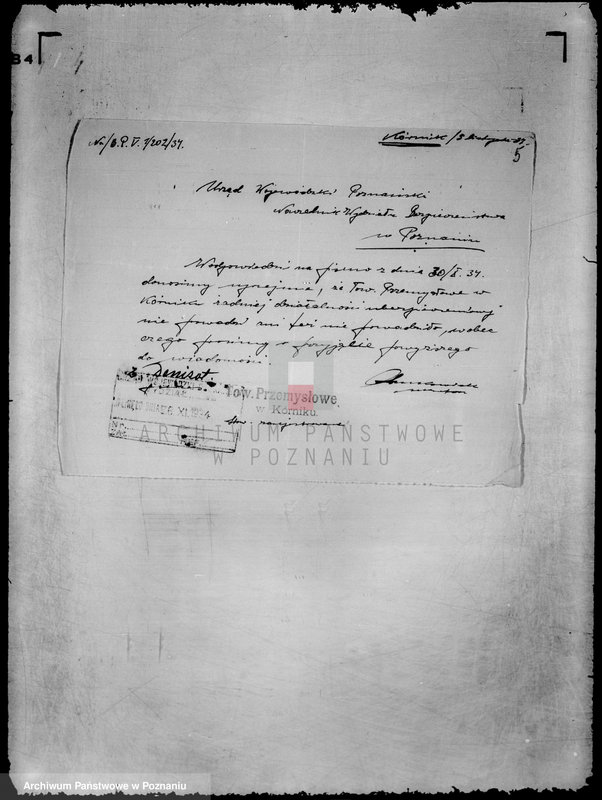 34
No/B.P.V. 1/202/34.
Kórnik
5
Urząd Wojewódzki Poznański
Naczelnik Wydziału Bezpieczeństwa
w Poznaniu
W odpowiedzi na pismo z dnia 30/X. 34.
donosimy uprzejmie, że Tow. Przemysłowe w
Kórniku żadnej działalności ubezpieczeniowej
nie prowadzi ani też nie prowadziło, wobec
czego prosimy o przyjęcie powyższego
do wiadomości.
Denisot
Tow. Przemysłowe
w Kórniku.
XI. 1934
ARCHIWUM PAŃSTWOWE
W POZNANIU
Archiwum Państwowe w Poznaniu